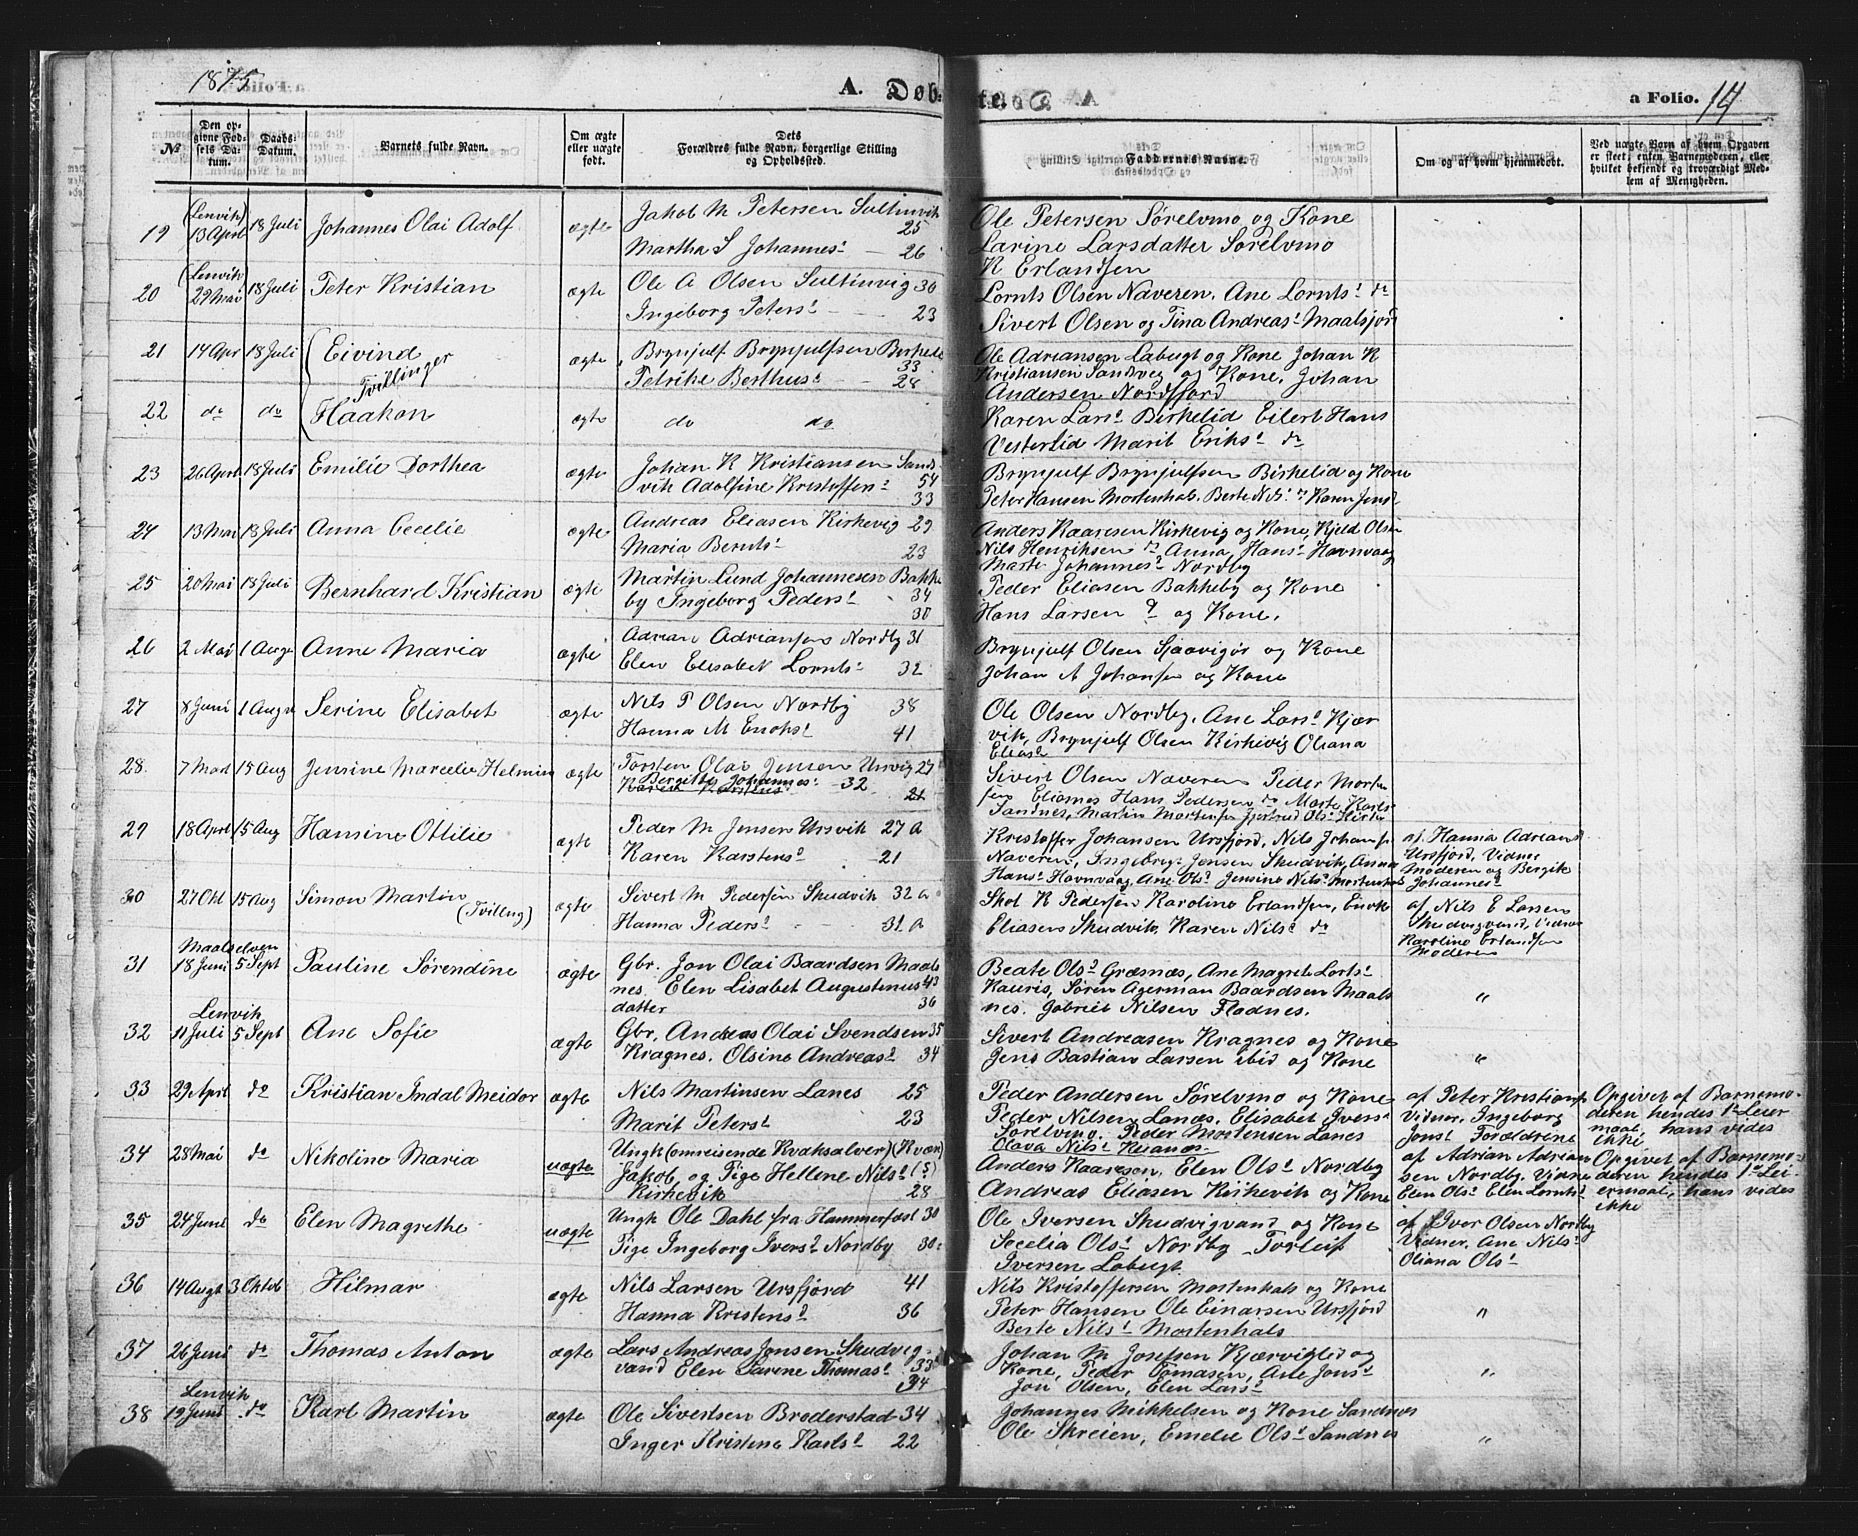 1875
A. Døb-
te.
a Folio. 14
No
Den op-
givne Fød-
sels Da-
tum.
Daabs-
Datum.
Barnets fulde Navn.
Om ægte
eller uægte
født.
Dets
Forældres fulde Navn, borgerlige Stilling
og Opholdssted.
Faddernes Navne.
Om og af hvem hjemmedøbt.
Ved uægte Barn af hvem Opgaven
er skeet, enten Barnemoderen, eller
hvilket bekjendt og troværdigt Med-
lem af Menigheden.
19 (Lenvik) 13 April 18 Juli Johannes Olai Adolf ægte Jakob M Petersen Sultinvik 25
Martha S Johannesd 26
Ole Petersen Sørelvmo og Kone
Larine Larsdatter Sørelvmo
K Erlandsen
20 (Lenvik) 29 Mai 18 Juli Peter Kristian ægte Ole A Olsen Sultinvig 30
Ingeborg Petersd 23
Lornts Olsen Naveren. Ane Lorntsd do
Sivert Olsen og Tina Andreasd Maalsjord
21 14 Apr 18 Juli Eivind ægte Brynjulf Brynjulfsen Birkeli 33
Tvillinger
Petrike Berthusd 28
Ole Adriansen Labugt og Kone Johan K
Kristiansen Sandvig og Kone, Johan
Andersen Nordfjord
22 do do Haakon ægte do do
Karen Larsd Birkelid Eilert Hans
Vesterlid Marit Eriksd do
23 26 April 18 Juli Emilie Dorthea ægte Johan K Kristiansen Sand- 54
vik Adolfine Kristoffersd 33
Brynjulf Brynjulfsen Birkelid og Kone
Peter Hansen Mortenhals. Berte Nilsd Karen Jensd
24 13 Mai 18 Juli Anna Cecelie ægte Andreas Eliasen Kirkevig 29
Maria Berntsd 23
Anders Kaaresen Kirkevig og Kone, Kjeld Olsen
Nils Henriksen do Anna Hansd Havnvaag
Marte Johannesd Nordby
25 20 Mai 18 Juli Bernhard Kristian ægte Martin Lund Johannesen Bakke 34
by Ingeborg Pedersd 30
Peder Eliasen Bakkeby og Kone
Hans Larsen do og Kone.
26 2 Mai 1 Augu Anne Maria ægte Adrian Adriansen Nordby 31
Elen Elisabet Lorntsd 32
Brynjulf Olsen Sjaavigør og Kone
Johan A Johansen og Kone
27 8 Juni 1 Augu Serine Elisabet ægte Nils P Olsen Nordby 38
Hanna M Enoksd 41
Ole Olsen Nordby, Ane Larsd Kjær
vik, Brynjulf Olsen Kirkevig Oliana
Eliasd
28 7 Mai 15 Aug Jensine Marcelie Helmine ægte Torsten Olai Jensen Ursvig 27
Bergitte Johannesd 32
Karen Karstens 21
Sivert Olsen Naveren Peder Morten
sen Hans Pedersen do Marte Karls
Sandnes, Martin Mortensen
29 18 April 15 Aug Hansine Ottilie ægte Peder M Jensen Ursvik 27 a
Karen Karstensd 21
Kristoffer Johansen Ursfjord, Nils Johansen
Naveren, Ingebrigt Jensen Skudvik, Anna
Hansd Havnvaag, Ane Olsd Jensine Nilsd Mortenhals
af Hanna Adriansd
Ursfjord, Vidner
Moderen og Bergite
Johannesd
30 27 Okt 15 Aug Simon Martin (Tvilling) ægte Sivert M Pedersen Skudvik 32 a
Hanna Pedersd 31 a
Skot K Pedersen Karoline Erlandsen, Enok
Eliasen Skudvik, Karen Nilsd do
af Nils E Larsen
Skudvigvand, Vidner
Karoline Erlandsen
Moderen
31 Maalselven 18 Juni 5 Sept Pauline Sørendine ægte Gbr. Jon Olai Baardsen Maals
nes. Elen Lisabet Augustinus 43
datter 36
Beate Olsd Græsnæs, Ane Magrete Lorts
Kauris, Søren Agerman Baardsen Maals
nes. Gabriel Nilsen Fladnes.
"
32 Lenvik 11 Juli 5 Sept Ane Sofie ægte Gbr. Andreas Olai Svendsen 35
Kragnes. Olsine Andreasd 34
Sivert Andreasen Kragnes og Kone
Jens Bastian Larsen ibid og Kone
"
33 29 April do Kristian Indal Meidor ægte Nils Martinsen Lanes 25
Marit Petersd 23
Peder Andersen Sørelvmo og Kone
Peder Nilsen Lanæs, Elisabet Iversd
Sørelvmo. Peder Mortensen Lanes
Olava Nilsd
af Peter Kristians
Vidner, Ingeborg
Jonsd Forældrene
Opgivet af Barnemo-
deren hendes 1ste Leier
maal, hans vides
ikke
34 28 Mai do Nikoline Maria uægte Ungk (omreisende Kvaksalver) (Kvæn)
Jakob og Pige Hellene Nilsd (5)
Kirkevik 28
Anders Kaaresen, Elen Olsd Nordby
Andreas Eliasen Kirkevik og Kone
af Adrian Adrian
sen Nordby. Vidne
Elen Olsd Elen Lorntsd
Opgivet af Barnemo-
deren hendes 1ste Lei
ermaal, hans vides
ikke
35 24 Juni do Elen Magrethe uægte Ungk Ole Dahl fra Hammerfæst 30
Pige Ingeborg Iversd Nordby 30
Ole Iversen Skudvigvand og Kone
Secelia Olsd Nordby Torleif
Iversen Labugt
af Iver Olsen Nordby
Vidner. Ane Nilsd
Oliana Olsd
36 14 Augt 3 Oktob Hilmar ægte Nils Larsen Ursfjord 41
Hanna Kristensd 36
Nils Kristoffersen Mortenhals og Kone
Peter Hansen Ole Einarsen Ursfjord
Berte Nilsd Mortenhals
"
37 26 Juni do Thomas Anton ægte Lars Andreas Jonsen Skudvig-
vand Elen Sarene Thomasd 33
34
Johan M Josefsen Kjærviglid og
Kone, Peder Tomasen, Ane Jonsd
Jon Olsen, Elen Larsd
"
38 Lenvik 19 Juni do Karl Martin ægte Ole Sivertsen Brøderstad 34
Inger Kristene Karlsd 22
Johannes Mikkelsen og Kone Sandnes
Ole Skreien, Emelie Olsd Sandnes
"